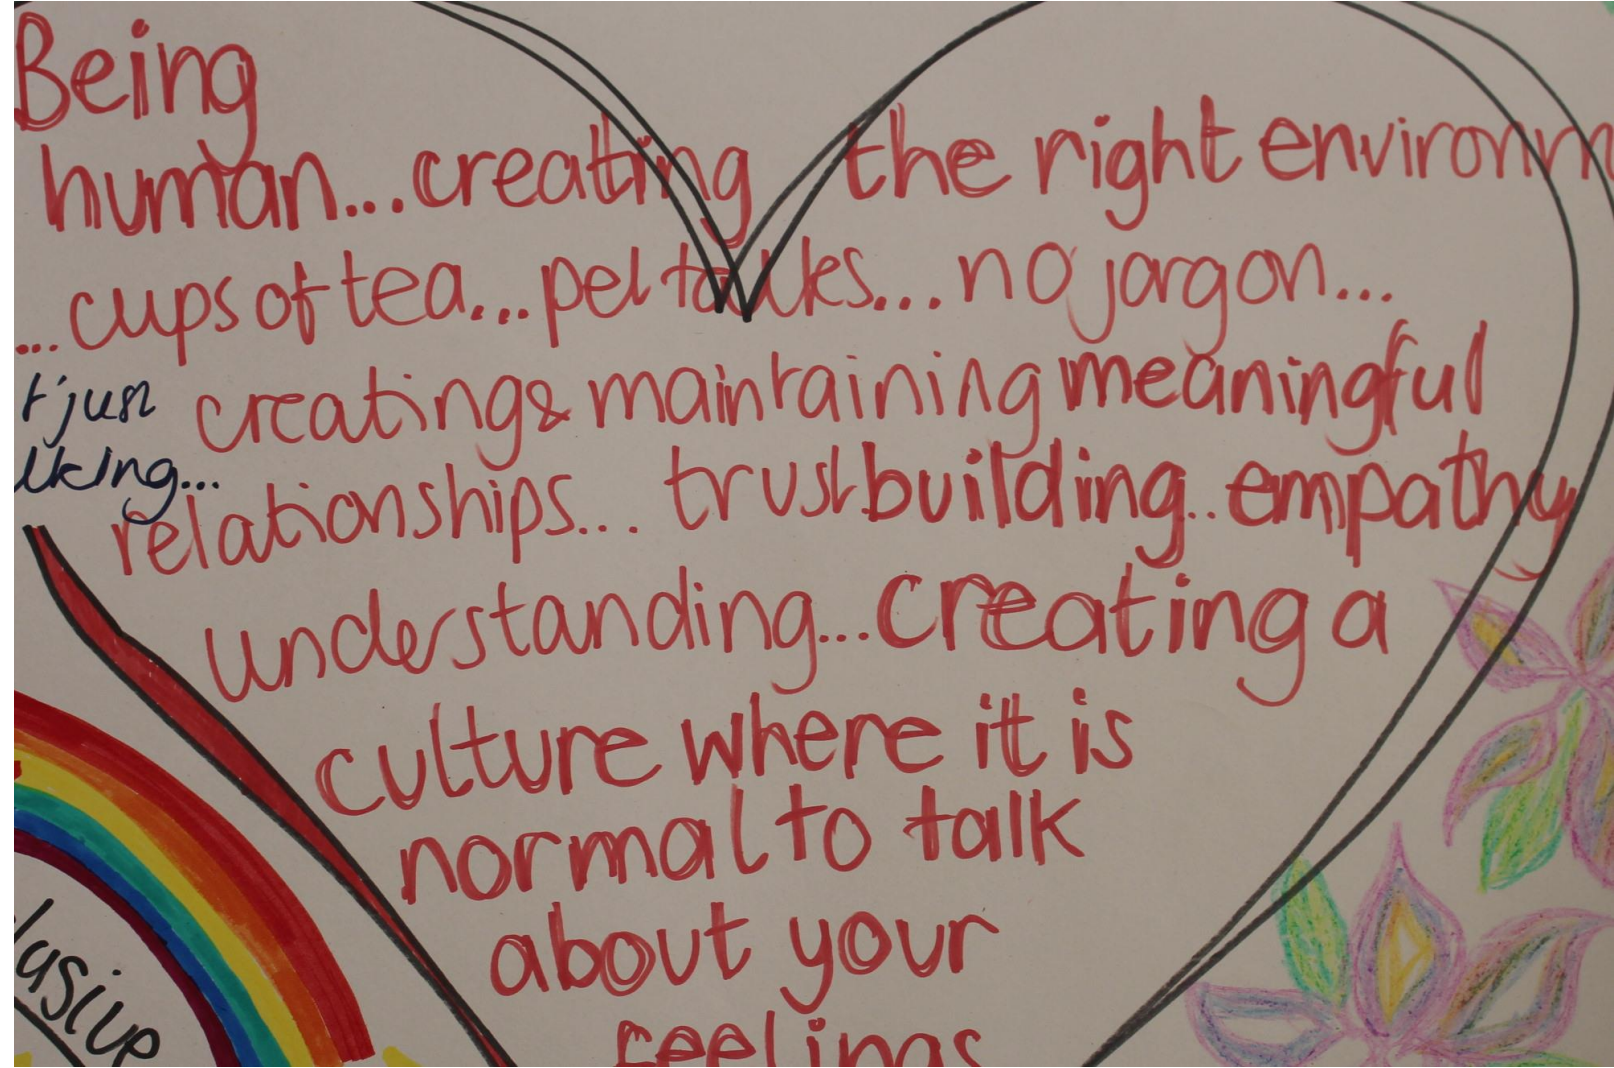 Being
human...creating the right environm
...cups of tea...pet talks...no jargon...
t just creating & maintaining meaningful
lking...
relationships... trust building..empathy
understanding...creating a
culture where it is
normal to talk
about your
feelings
lusive